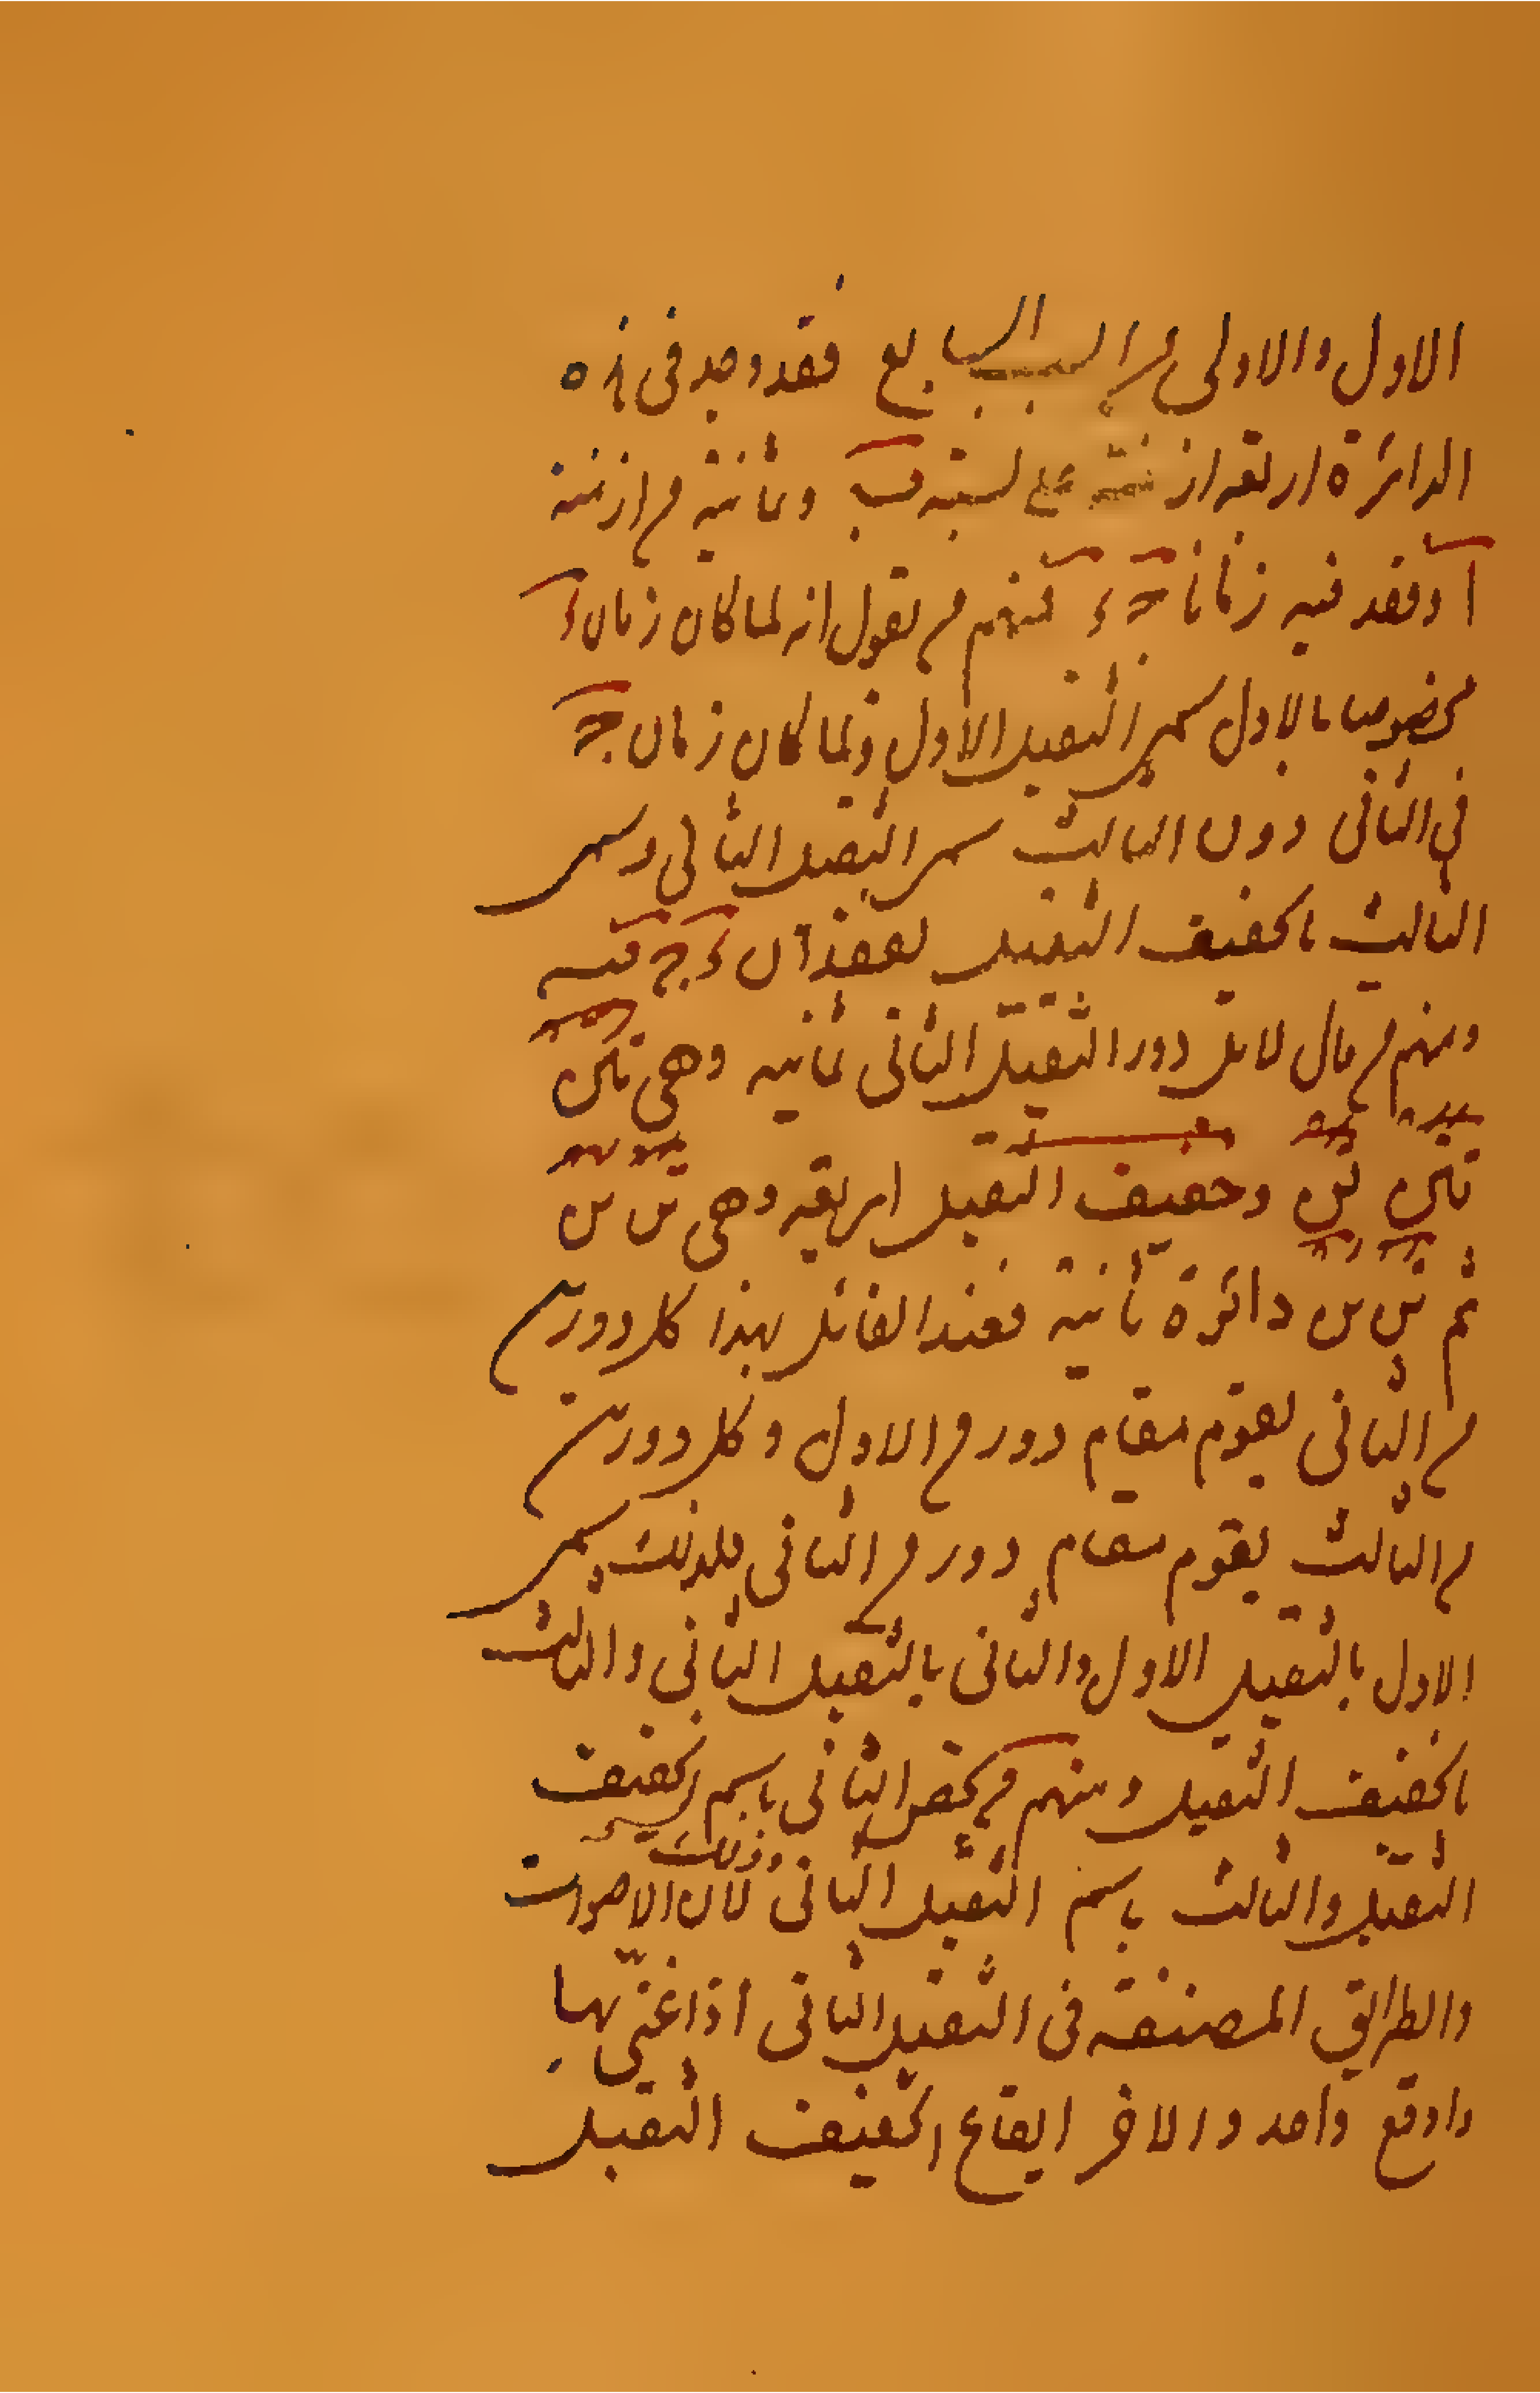 الاول والاولى من السابع فقد وجد فى هذه
الدائرة اربعة ازمنة على نسبة ب وثمانية من ازمنة
آ وفقد فيه زمانا ج د فمنهم من يقول انه لما كان زمان د
مخصوصا بالاول سمى الثقيل الاول ولما كان زمان ج
فى الثانى دون الثالث سمى الثقيل الثانى وسمى
الثالث بالخفيف الثقيل لفقدان د ج فيه
ومنهم من قال لا بل دور الثقيل الثانى ثمانية وهى تنن
تنن تن وخفيف الثقيل اربعة وهى تن تن
ثم تن تن دائرة ثانية فعند القائل بهذا كل دورين
من الثانى يقوم مقام دور من الاول وكل دورين
من الثالث يقوم مقام دور من الثانى فلذلك سمى
الاول بالثقيل الاول والثانى بالثقيل الثانى والثالث
بالخفيف الثقيل ومنهم من يخص الثانى باسم الخفيف
الثقيل والثالث باسم الثقيل الثانى وذلك لان الاصوات
والطرايق المصنفة فى الثقيل الثانى اذا غنى بها
واوقع واحد والاخر ايقاع الخفيف الثقيل